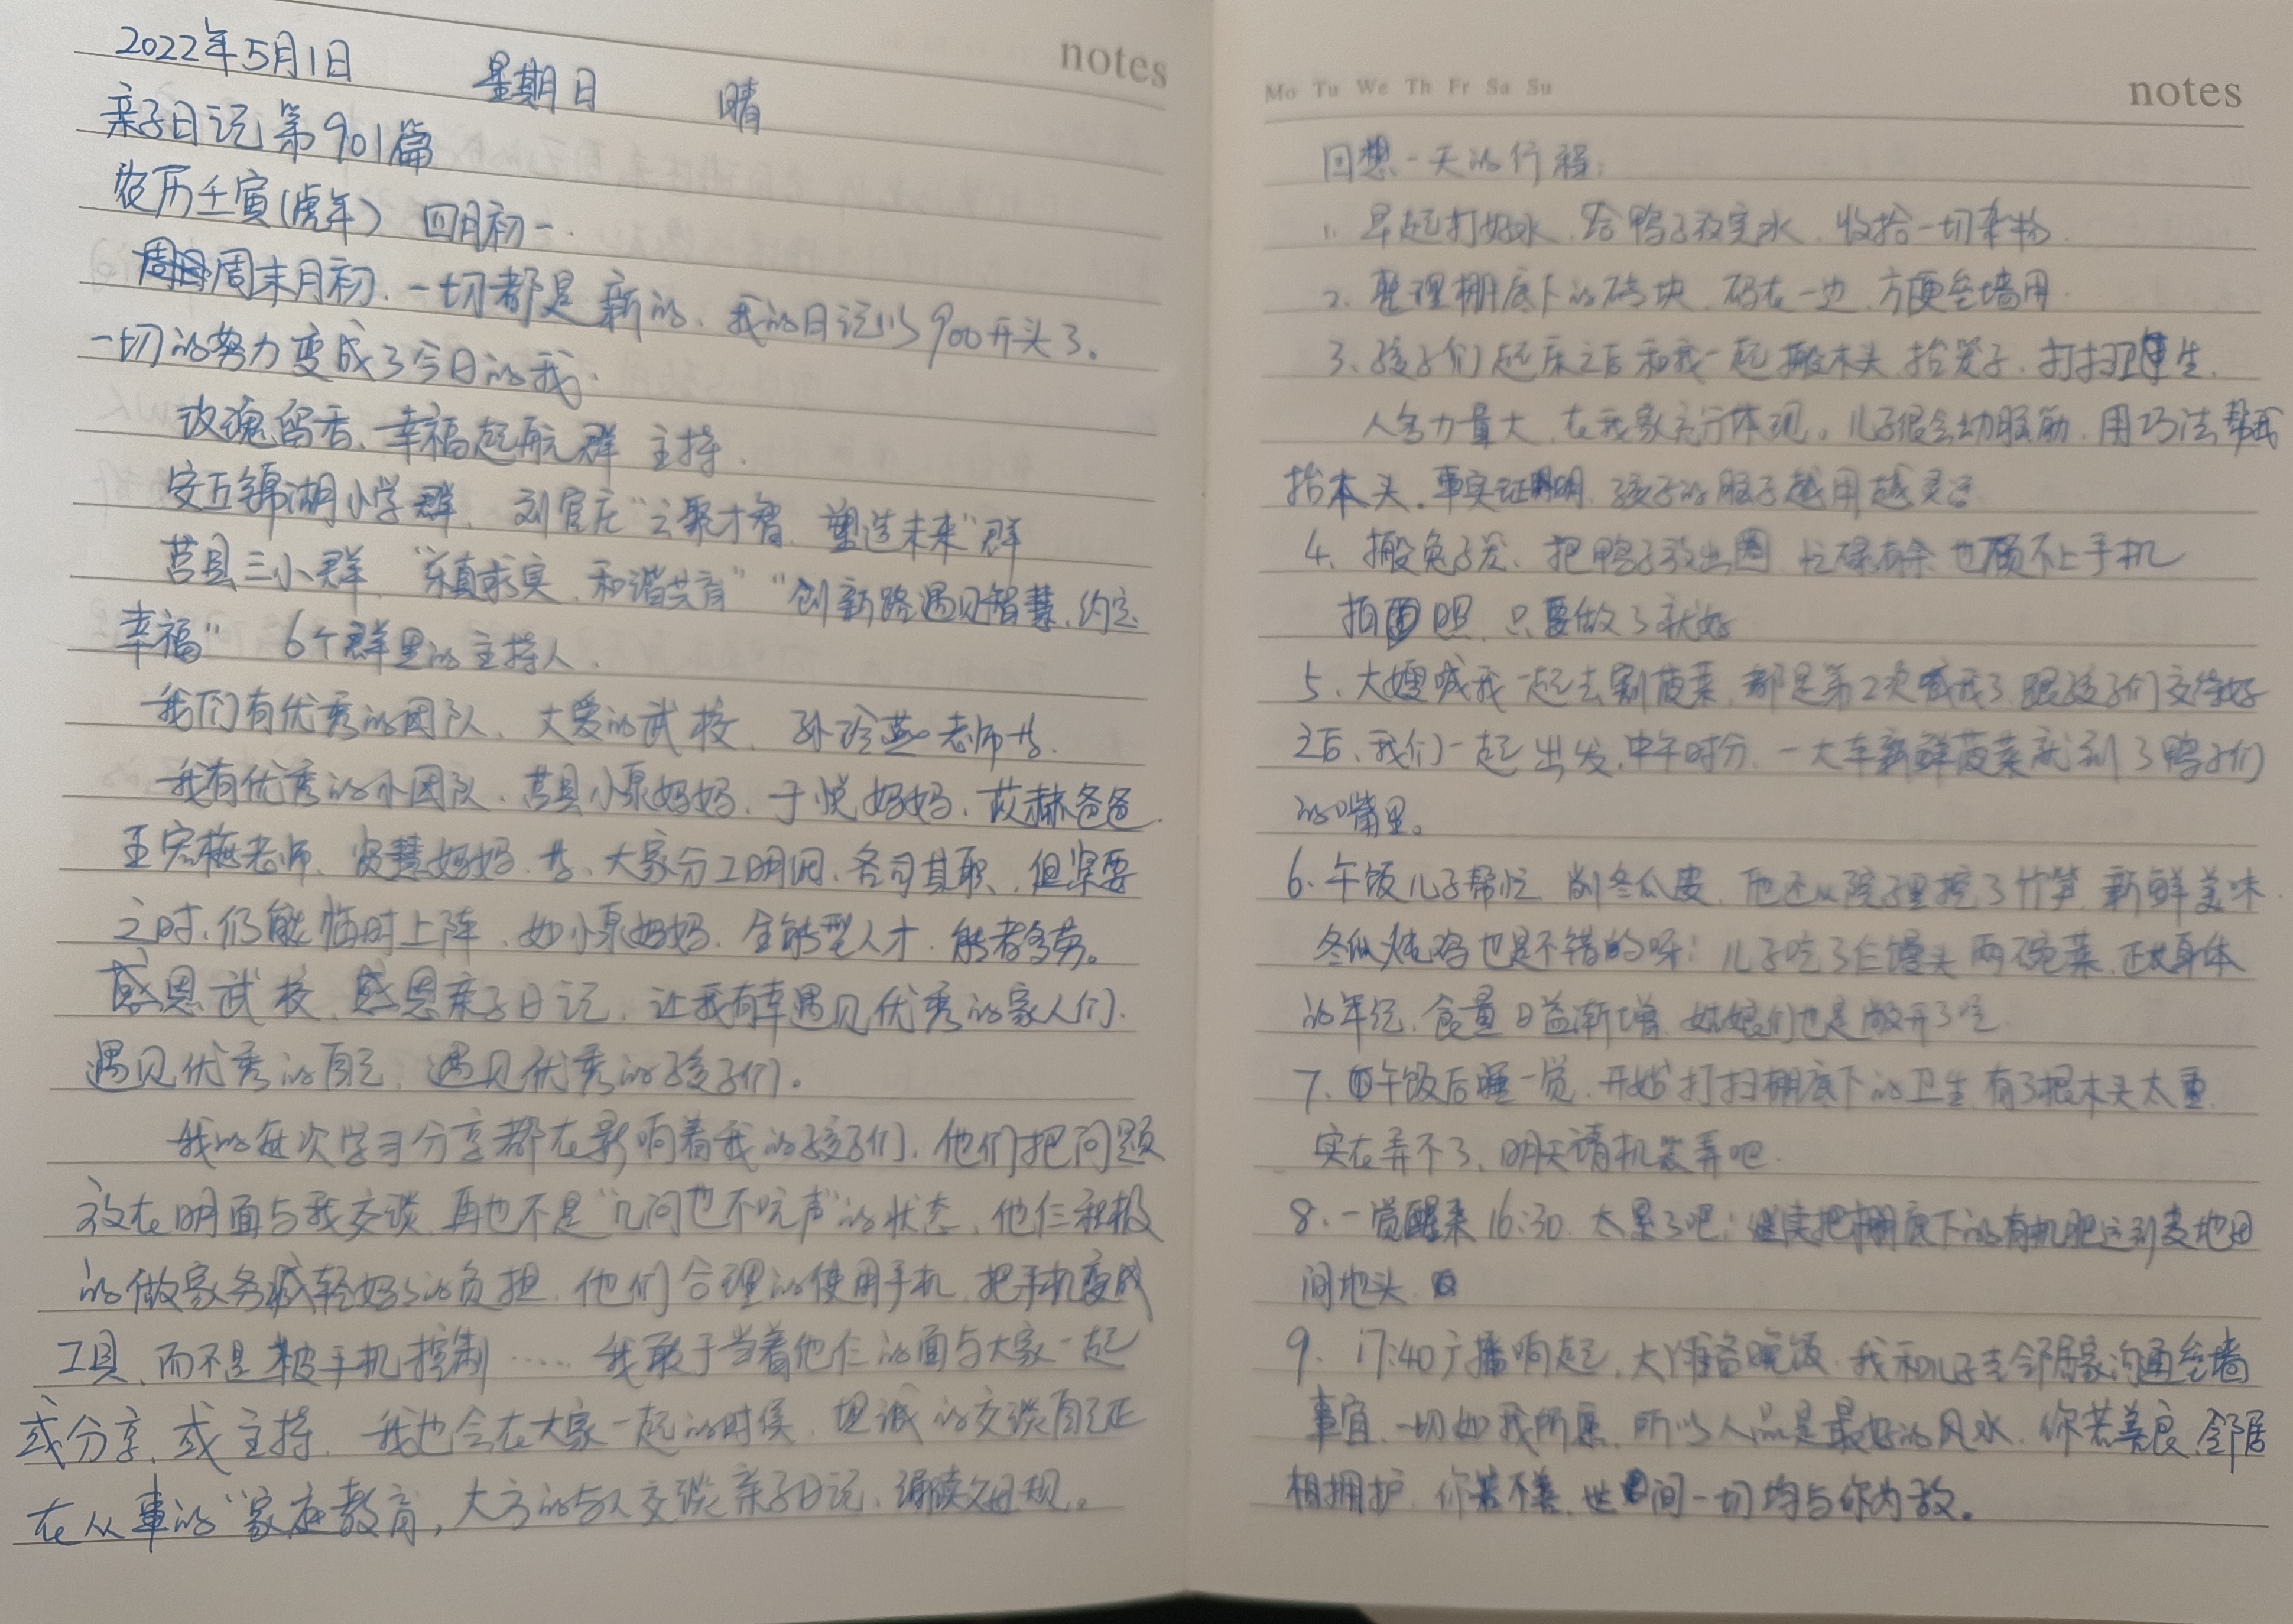 notes
2022年5月1日 星期日 晴
亲子日记第901篇
农历壬寅(虎年) 四月初一.
周末月初、一切都是新的、我的日记以900开头了。
一切的努力变成了今日的我.
玫瑰留香、幸福起航群 主持.
安丘锦湖小学群、刘官庄“云聚才智、塑造未来”群
莒县三小群、“求真求实、和谐共育”“创新路遇见智慧、约定
幸福” 6个群里的主持人.
我们有优秀的团队、大爱的武校、孙玲燕老师等.
我有优秀的小团队、莒县小泉妈妈、于悦妈妈、苡赫爸爸.
王宏梅老师、贤慧妈妈、等、大家分工明细、各司其职、但紧要
之时、仍能临时上阵、如小泉妈妈、全能型人才、能者多劳。
感恩武校、感恩亲子日记、让我有幸遇见优秀的家人们.
遇见优秀的自己、遇见优秀的孩子们。
我的每次学习分享都在影响着我的孩子们、他们把问题
放在明面与我交谈、再也不是“几问也不吭声”的状态、他仨积极
的做家务减轻妈妈的负担、他们合理的使用手机、把手机变成
工具、而不是被手机控制……我敢于当着他仨的面与大家一起
或分享、或主持、我也会在大家一起的时候、坦诚的交谈自己正
在从事的“家庭教育，大方的与人交谈亲子日记、诵读父母规。
Mo Tu We Th Fr Sa Su
notes
回想一天的行程:
1. 早起打好水、给鸭子放完水、收拾一切杂物.
2. 整理棚底下的砖块、码在一边、方便垒墙用.
3、孩子们起床之后和我一起搬木头、抬笼子、打扫卫生.
人多力量大、在我家充分体现。儿子很会动脑筋、用巧法帮我
抬木头。事实证明、孩子的脑子越用越灵活
4. 搬兔子笼、把鸭子放出圈、忙碌有余 也顾不上手机
拍照、只要做了就好
5、大嫂喊我一起去割菠菜、都是第2次喊我了、跟孩子们交待好
之后、我们一起出发、中午时分、一大车新鲜菠菜就到了鸭子们
的嘴里。
6. 午饭儿子帮忙、削冬瓜皮、他还从院子里挖了竹笋、新鲜美味.
冬瓜炖鸡也是不错的呀! 儿子吃了仨馒头 两碗菜、正长身体
的年纪、食量日益渐增、姑娘们也是敞开了吃
7、午饭后睡一觉、开始打扫棚底下的卫生、有3根木头太重.
实在弄不了、明天请机器弄吧.
8、一觉醒来16:30、太累了吧; 继续把棚底下的有机肥运到麦地田
间地头.
9、17:40广播响起、大丫准备晚饭、我和儿子去邻居家沟通垒墙
事宜、一切如我所愿、所以人品是最好的风水、你若善良、邻居
相拥护、你若不善、世间一切均与你为敌。